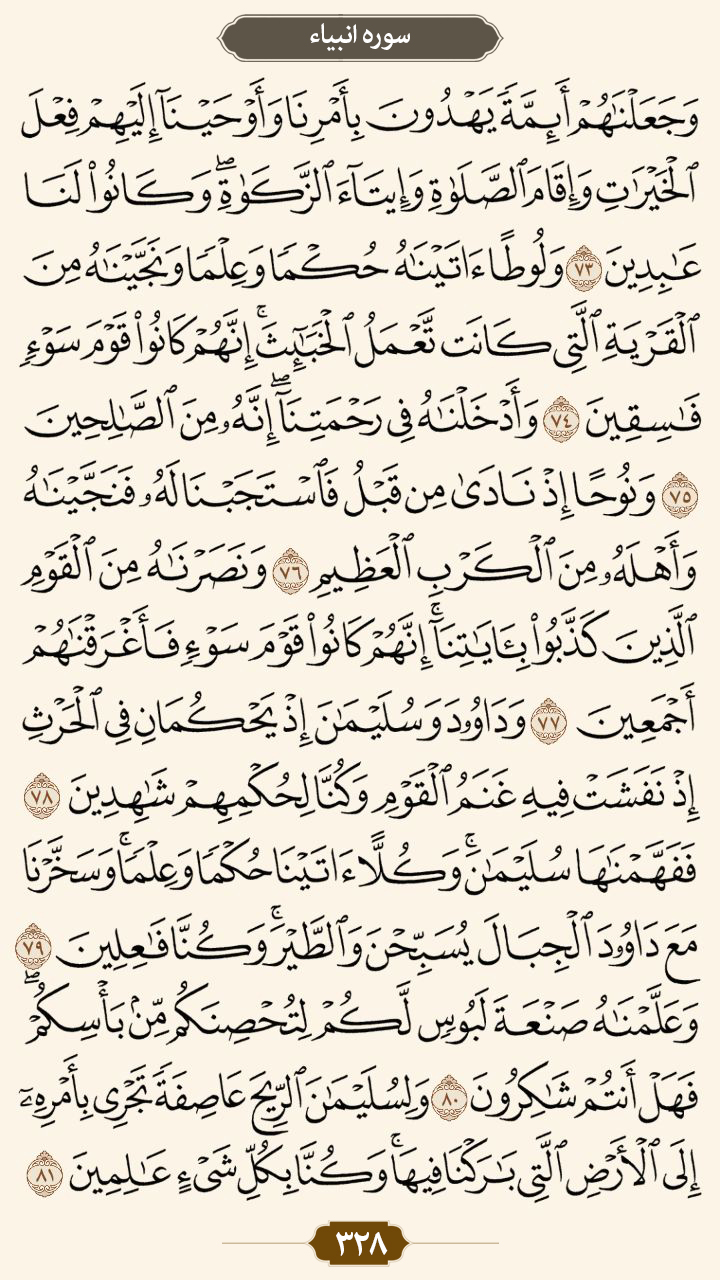 سوره انبیاء
وَجَعَلْنَٰهُمْ أَئِمَّةً يَهْدُونَ بِأَمْرِنَا وَأَوْحَيْنَآ إِلَيْهِمْ فِعْلَ
ٱلْخَيْرَٰتِ وَإِقَامَ ٱلصَّلَوٰةِ وَإِيتَآءَ ٱلزَّكَوٰةِۖ وَكَانُوا۟ لَنَا
عَٰبِدِينَ ٧٣ وَلُوطًا ءَاتَيْنَٰهُ حُكْمًا وَعِلْمًا وَنَجَّيْنَٰهُ مِنَ
ٱلْقَرْيَةِ ٱلَّتِى كَانَت تَّعْمَلُ ٱلْخَبَٰٓئِثَۚ إِنَّهُمْ كَانُوا۟ قَوْمَ سَوْءٍ
فَٰسِقِينَ ٧٤ وَأَدْخَلْنَٰهُ فِى رَحْمَتِنَآۖ إِنَّهُۥ مِنَ ٱلصَّٰلِحِينَ
٧٥ وَنُوحًا إِذْ نَادَىٰ مِن قَبْلُ فَٱسْتَجَبْنَا لَهُۥ فَنَجَّيْنَٰهُ
وَأَهْلَهُۥ مِنَ ٱلْكَرْبِ ٱلْعَظِيمِ ٧٦ وَنَصَرْنَٰهُ مِنَ ٱلْقَوْمِ
ٱلَّذِينَ كَذَّبُوا۟ بِـَٔايَٰتِنَآۚ إِنَّهُمْ كَانُوا۟ قَوْمَ سَوْءٍ فَأَغْرَقْنَٰهُمْ
أَجْمَعِينَ ٧٧ وَدَاوُۥدَ وَسُلَيْمَٰنَ إِذْ يَحْكُمَانِ فِى ٱلْحَرْثِ
إِذْ نَفَشَتْ فِيهِ غَنَمُ ٱلْقَوْمِ وَكُنَّا لِحُكْمِهِمْ شَٰهِدِينَ ٧٨
فَفَهَّمْنَٰهَا سُلَيْمَٰنَۚ وَكُلًّا ءَاتَيْنَا حُكْمًا وَعِلْمًاۚ وَسَخَّرْنَا
مَعَ دَاوُۥدَ ٱلْجِبَالَ يُسَبِّحْنَ وَٱلطَّيْرَۚ وَكُنَّا فَٰعِلِينَ ٧٩
وَعَلَّمْنَٰهُ صَنْعَةَ لَبُوسٍ لَّكُمْ لِتُحْصِنَكُم مِّنۢ بَأْسِكُمْۖ
فَهَلْ أَنتُمْ شَٰكِرُونَ ٨٠ وَلِسُلَيْمَٰنَ ٱلرِّيحَ عَاصِفَةً تَجْرِى بِأَمْرِهِۦٓ
إِلَى ٱلْأَرْضِ ٱلَّتِى بَٰرَكْنَا فِيهَاۚ وَكُنَّا بِكُلِّ شَىْءٍ عَٰلِمِينَ ٨١
٣٢٨